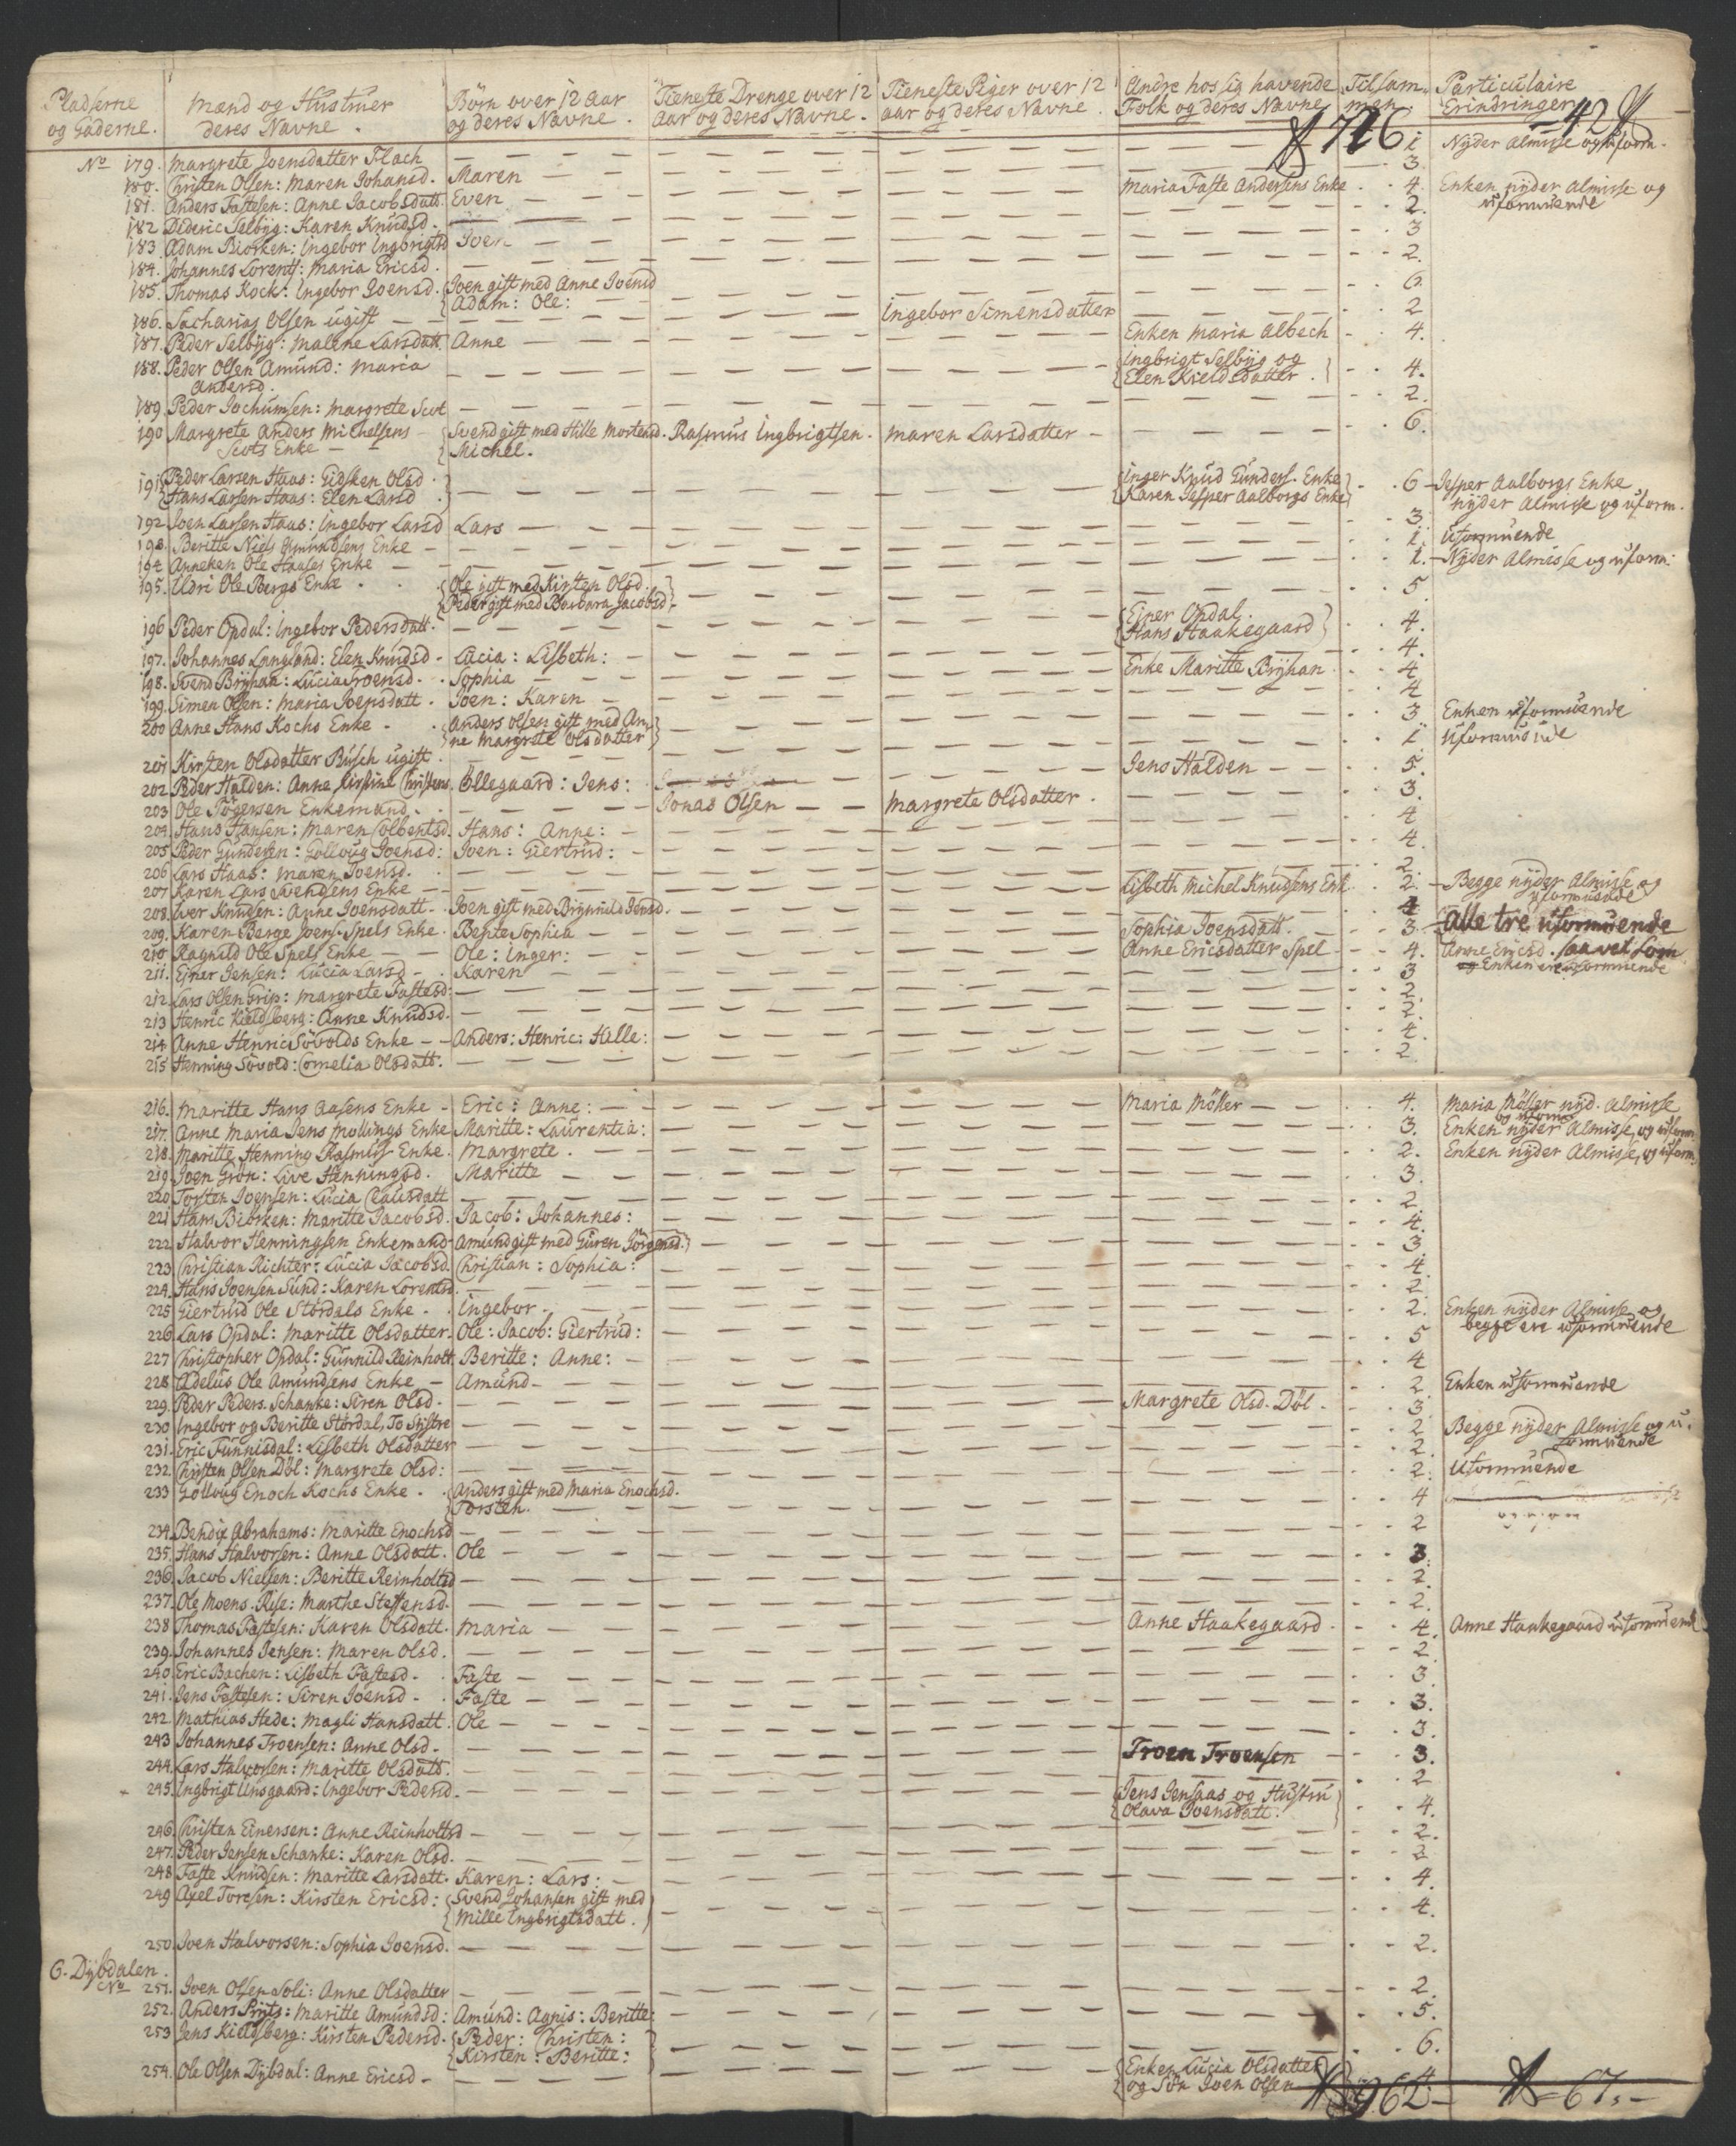 Pladserne og Gaderne. | Mænd og Hustruer deres Navne. | Börn over 12 Aar og deres Navne. | Tieneste Drenge over 12 Aar og deres Navne. | Tieneste Piger over 12 aar og deres Navne | Andre hos sig havende Folk og deres Navne | Tilsammen | Particulaire Erindringer
726 | 42
No 179. Margrete Joensdatter Flach 1 Nyder Almisse og uform.
180. Christen Olsen: Maren Johansd. Maren 3
181. Anders Fastesen: Anne Jacobsdatt. Even Maria Faste Andersens Enke 4. Enken nyder Almisse og uformuende
182 Dideric Selbyg: Karen Knudsd. 2.
183. Adam Biorken: Ingebor Ingbrigtsd Joen 3
184. Johannes Lorents: Maria Ericsd. 2.
185. Thomas Kock: Ingebor Joensd. Joen gift med Anne Joensd
Adam: Ole: 6
186. Sacharias Olsen ugift Ingebor Simensdatter 2
187. Peder Selbyg: Malene Larsdatt. Anne Enken Maria Albech 4.
188. Peder Olsen Amund: Maria Andersd. Ingbrigt Selbyg og
Elen Kieldsdatter. 4.
189. Peder Jochumsen: Margrete Scot 2.
190 Margrete Anders Michelsens Svend gift med Hille Mortensd. Rasmus Ingbrigtsen. Maren Larsdatter 6.
Scots Enke Michel.
191. Peder Larsen Haas: Gidsken Olsd. Inger Knud Gunders. Enke 6 Jesper Aalborgs Enke
Hans Larsen Haas: Elen Larsd Karen Jesper Aalborgs Enke nyder Almisse og uform.
192. Joen Larsen Haas: Ingebor Larsd Lars 3.
193. Beritte Niels Amundsens Enke 1. Uformuende
194 Anneken Ole Hauses Enke 1. Nyder Almisse og uform:
195. Eldri Ole Bergs Enke Ole gift med Kirsten Olsd.
Peder gift med Barbara Jacobsd 5
196 Peder Opdal: Ingebor Pedersdatt. Einer Opdal.
Hans Haakegaard 4.
197. Johannes Langland: Elen Knudsd Lucia: Lisbeth: 4.
198. Svend Bryhan: Lucia Troensd. Sophia Enke Maritte Bryhan 4
199. Simen Olsen: Maria Joensdatt. Joen: Karen 4
200 Anne Hans Kochs Enke Anders Olsen gift med An-
ne Margrete Olsdatter 3 Enken uformuende
201 Kirsten Olsdatter Busch ugift. 1 Uformuende
202. Peder Halden: Anne Kirstine Christens. Ollegaard: Jens: Jens Halden 5.
203 Ole Jörgensen Enkemand. Jonas Olsen Margrete Olsdatter. 3.
204. Hans Hansen: Maren Colbentsd. Hans: Anne: 4
205 Peder Gundersen: Gollaug Joensd: Joen: Giertrud: 4.
206 Lars Haas: Maren Joensd. 2.
207 Karen Lars Svendsens Enke Lisbeth Michel Knudsens Enk. 2. Begge nyder Almisse og
uformuende
208. Iver Knudsen: Anne Joensdatt. Joen gift med Brynnild Jensd. 4
209. Karen Berge Joens. Spels Enke. Bente Sophia Sophia Joensdatt. 3. alle tre uformuende
210 Ragnild Ole Spels Enke Ole: Inger: Anne Ericsdatter Spel 4. Anne Ericsd. saavel som
Enken ere uformuende
211. Ejner Jensen: Lucia Larsd. Karen 3
212. Lars Olsen Grip: Margrete Fastesd. 2.
213 Henric Kieldsberg: Anne Knudsd. 2.
214 Anne Henric Sövolds Enke Anders: Henric: Hille: 4.
215 Henning Sövold: Cornelia Olsdatt. 2.
216. Maritte Hans Aasens Enke Eric: Anne: Maria Möller 4. Maria Möller nyd. Almisse og uform.
217. Anne Maria Jens Mollings Enke Maritte: Laurentia: 3. Enken nyder Almisse, og uform
218. Maritte Henning Rasmus's Enke. Margrete. 2. Enken nyder Almisse, og uform.
219. Joen Grön: Live Henningsd. Maritte 3.
220 Torsten Joensen: Lucia Clausdatt 2.
221 Hans Biörken: Maritte Jacobsd. Jacob: Johannes: 4.
222. Halvor Henningsen Enkemand Amund gift med Guren Jörgensd. 3.
223 Christian Richter: Lucia Jacobsd Christian: Sophia: 4.
224. Hans Joensen Sund: Karen Lorentsd. 2
225 Giertrud Ole Stördals Enke Ingebor. 2. Enken nyder Almisse og
begge ere uformuende
226 Lars Opdal: Maritte Olsdatter. Ole: Jacob: Giertrud: 5
227 Christopher Opdal: Gunnild Reinholt. Beritte: Anne: 4
228 Adelus Ole Amundsens Enke Amund 2. Enken uformuende
229. Peder Peders. Schanke: Siren Olsd. Margrete Olsd. Döl. 3.
230 Ingebor og Beritte Stördal, To Systre 2 Begge nyder Almisse og u.
formuende
231. Eric Funnisdal: Lisbeth Olsdatter 2.
232. Christen Olsen Döl: Margrete Olsd: 2. Uformuende
233 Gollaug Enoch Kochs Enke Anders gift med Maria Enochsd.
Torsten. 4
234. Bendix Abrahams: Maritte Enochsd 2
235. Hans Halvorsen: Anne Olsdatt. Ole 3.
236. Jacob Nielsen: Beritte Reinholtsd 2.
237. Ole Moens. Rise: Marthe Steffensd. 2.
238 Thomas Fastesen: Karen Olsdatt. Maria Anne Haakegaard. 4. Anne Haakegaard uformuend
239. Johannes Jensen: Maren Olsd. 2.
240 Eric Bachen: Lisbeth Fastesd. Faste 3.
241. Jens Fastesen: Siren Joensd Faste 3.
242. Mathias Hede: Magli Hansdatt. Ole 3.
243 Johannes Troensen: Anne Olsd. Troen Troensen 3.
244. Lars Halvorsen: Maritte Olsdatt. 2
245. Ingbrigt Unsgaard: Ingebor Pedersd. Jens Jensaas og Hustru
Olava Joensdatt. 4.
246. Christen Einersen: Anne Reinholtsd 2.
247. Peder Jensen Schanke: Karen Olsd. 2
248 Faste Knudsen: Maritte Larsdatt. Karen: Lars: 4.
249 Axel Toresen: Kirsten Ericsd: Svend Johansen gift med
Mille Ingbrigtsdatt. 4.
250. Joen Halvorsen: Sophia Joensd. 2.
6. Dybdalen.
No 251. Joen Olsen Soli: Anne Olsdatter 2.
252. Anders Pryts: Maritte Amundsd: Amund: Agnis: Beritte: 5.
253 Jens Kieldsberg: Kirsten Pedersd. Peder: Christen:
Kirsten: Beritte: 6.
254. Ole Olsen Dybdal: Anne Ericsd Enken Lucia Olsdatter
og Sön Joen Olsen 4.
962 67.